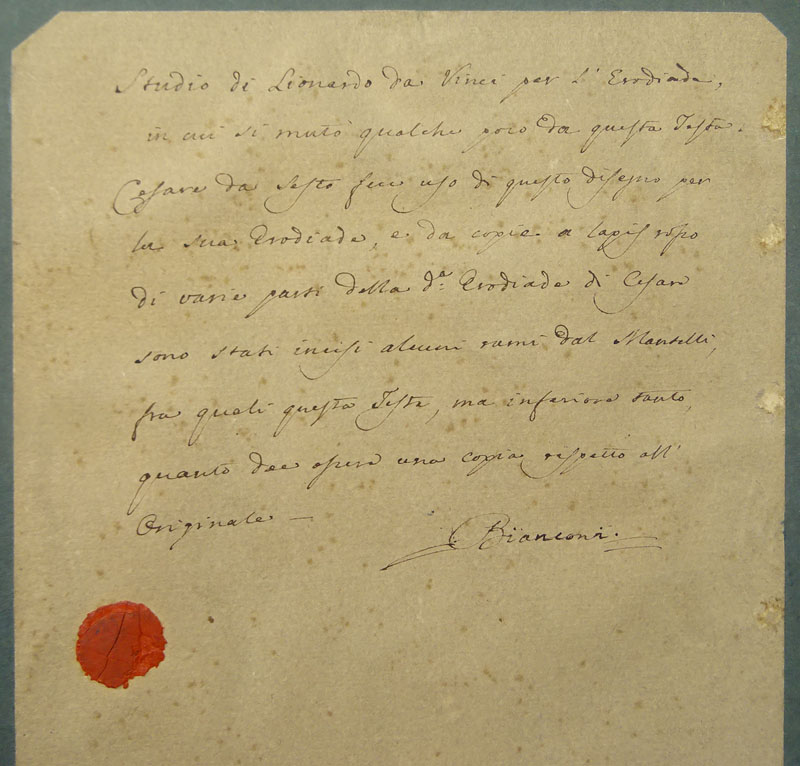 Studio di Lionardo da Vinci per l' Erodiade,
in cui si mutò qualche poco da questa Testa.
Cesare da Sesto fece uso di questo disegno per
la sua Erodiade, e da copie a lapis rosso
di varie parti della d.ª Erodiade di Cesare
sono stati incisi alcuni rami dal Mantelli,
fra quali questa Testa, ma inferiore tanto,
quanto dee essere una copia rispetto all'
Originale —
C. Bianconi.